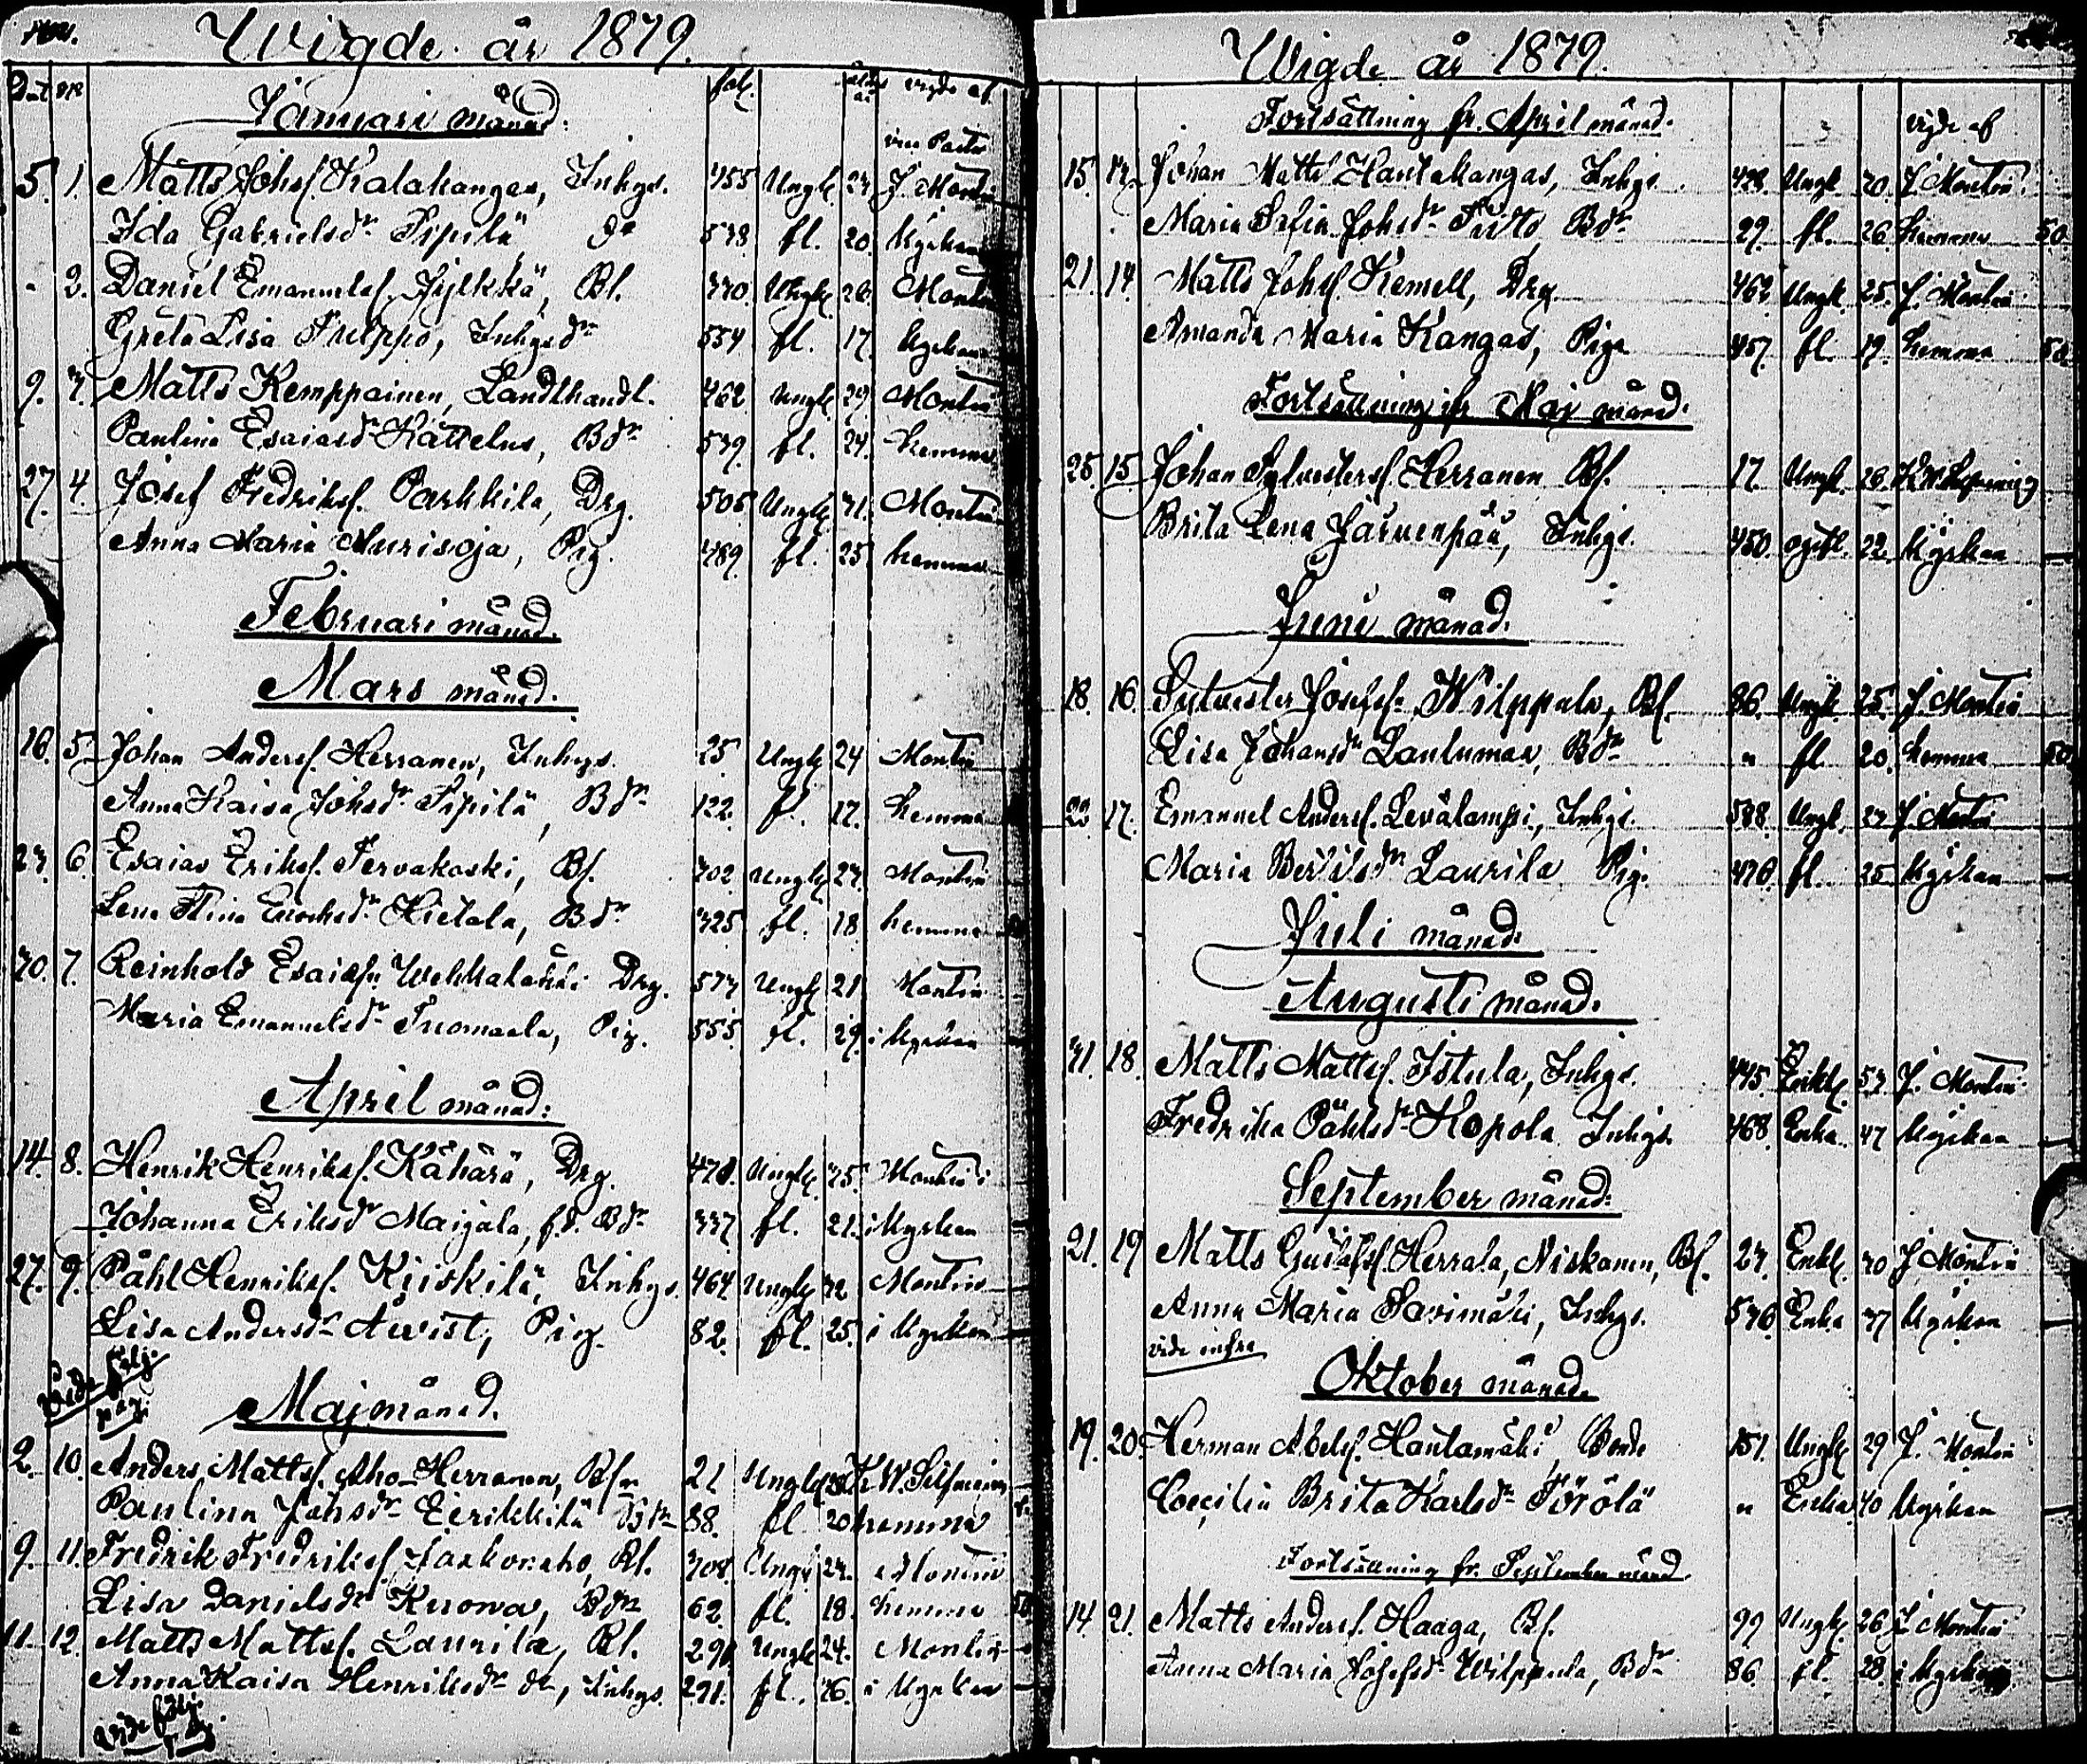 Wigde år 1879.
Dat № fol. ålder år vigde af
Januari månad.
vice Pastor
5. 1. Matts Johsf. Kalakangas, Inhys. 355 Ungk. 23 J. Montin
Ida Gabrielsdr Sipilä do 538 fl. 20. Kyrkan
" 2. Daniel Emanuelsf. Jylkkä, Bf. 330 Ungk. 20. Montin
Greta Lisa Pulppo, Inhysdr 554 fl. 17. Kyrkan
9. 3. Matts Kemppainen, Landthandl. 462 Ungk 29 Montin
Paulina Esaiasdr Kattelus, Bdr 539. fl. 24. hemma
27. 4. Josef Fredriksf. Parkkila, Drg. 506 Ungk. 31. Montin
Anna Maria Murisoja, Pig. 489. fl. 25 hemma
Februari månad.
Mars månad.
16. 5. Johan Andersf. Herranen, Inhys. 25 Ungk 24 Montin
Anna Kaisa Johsdr Sipilä, Bdr 122. fl. 17. hemma
23. 6. Esaias Eriksf. Tervakoski, Bf. 302. Ungk. 23. Montin
Lena Stina Enochsdr Hietala, Bdr 325 fl. 18. hemma
30. 7. Reinhold Esaiasf. Wehkakoski Drg. 573 Ungk 21 Montin
Maria Emanuelsdr Tuomaala, Pig. 555. fl. 29. i Kyrkan
April månad.
14. 8. Henrik Henriksf. Kähärä, Drg. 470. Ungk. 35. Montin i
Johanna Eriksdr Maijala, f.d. Bdr 337. fl. 21. i Kyrkan
27. 9. Påhl Henriksf. Kiiskilä, Inhys. 464 Ungk 32 Montin
Lisa Andersdr Qwist, Pig. 82. fl. 25. i Kyrkan
Vide följ. pag.
Maj månad.
2. 10. Anders Mattsf. Aho-Herranen, Bfn 21 Ungk K. W. Silfvening
Paulina Johsdr Eerikkilä Bdr 88. fl 20 hemma
9. 11. Fredrik Fredriksf. Jaakonaho, Bf. 308. Ungk 23. Montin
Lisa Danielsdr Kuona, Bdr 62. fl. 18. hemma 50
11. 12. Matts Mattsf. Laurila, Bf. 290 Ungk 24. Montin
Anna Kaisa Henriksdr do, Inhys. 291. fl. 26. i Kyrkan
vide följ. pag.
Wigde år 1879.
Fortsättning fr. April månad.
vigde af
15. 13. Johan Mattsf. Hautakangas, Inhys. 428. Ungk 20. J. Montin
Maria Sefia Johsdr Puito Bdr 29. fl. 26. hemma 50
21. 14. Matts Johsf. Kemell, Drg. 462 Ungk. 25. J. Montin
Amanda Maria Kangas, Piga 457. fl. 19. hemma 50
Fortsättning fr. Maj månad.
25. 15. Johan Sylvestersf. Herranen Bf. 17. Ungk. 26. K W Silfvening
Brita Lena Järvenpää, Inhys. 450. ogift. 22. Kyrkan
Juni månad.
18. 16. Sylvester Josefsf. Wilppula, Bf. 86. Ungk. 25. J. Montin
Lisa Johansdr Lautumaa, Bdr " fl. 20. hemma 50
23 17. Emanuel Andersf. Levälampi, Inhys. 588. Ungk. 23 J. Montin
Maria Bertilsdr Laurila Pig. 476. fl. 25 Kyrkan
Juli månad.
Augusti månad.
31. 18. Matts Mattsf. Istula, Inhys. 445. Enkl. 53. J. Montin
Fredrika Påhlsdr Kopola Inhys. 468. Enka. 47 Kyrkan
September månad.
21. 19 Matts Gustafsf. Herrala, Niskanen, Bf. 23. Enkl. 30 J Montin
Anna Maria Savimäki, Inhys. 576. Enka 37 Kyrkan
vide infra
Oktober månad.
19. 20. Herman Abelsf. Hautamäki, Bonde 151. Ungk. 29 J. Montin
Cecilia Brita Karlsdr Törölä " Enka 40 Kyrkan
Fortsättning fr. September månad.
14. 21. Matts Andersf. Haaga, Bf. 99 Ungk. 26. J Montin
Anna Maria Josefsdr Wilppula, Bdr 86. fl. 28. i Kyrkan